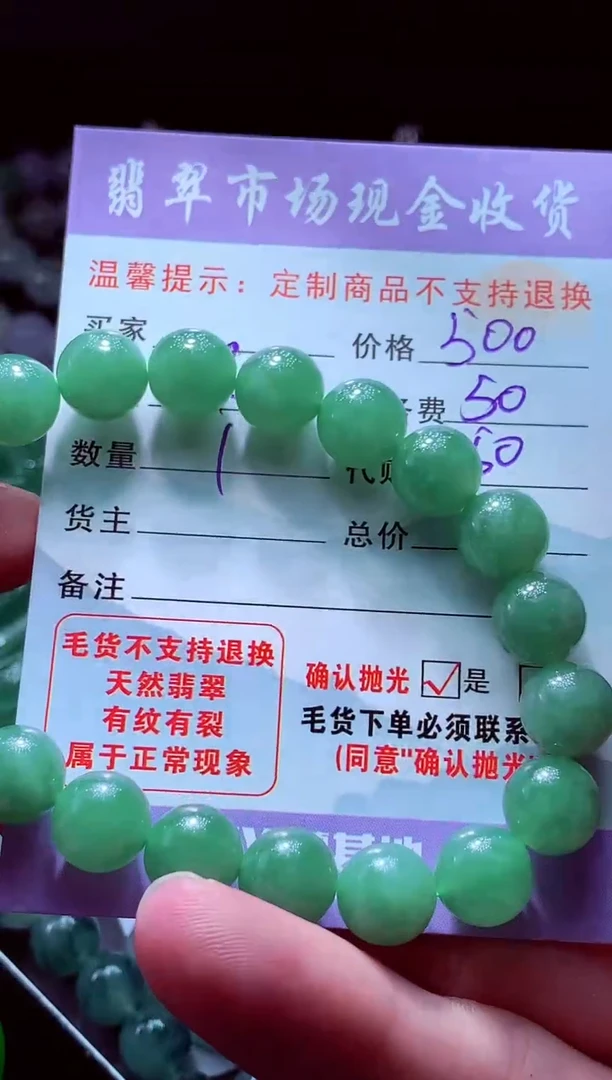 翡翠市场现金收货
温馨提示：定制商品不支持退换
买家 价格 500
费 50
数量 1
货主 总价
备注
毛货不支持退换
天然翡翠
有纹有裂
属于正常现象
确认抛光 是
毛货下单必须联系
(同意"确认抛光"
基地